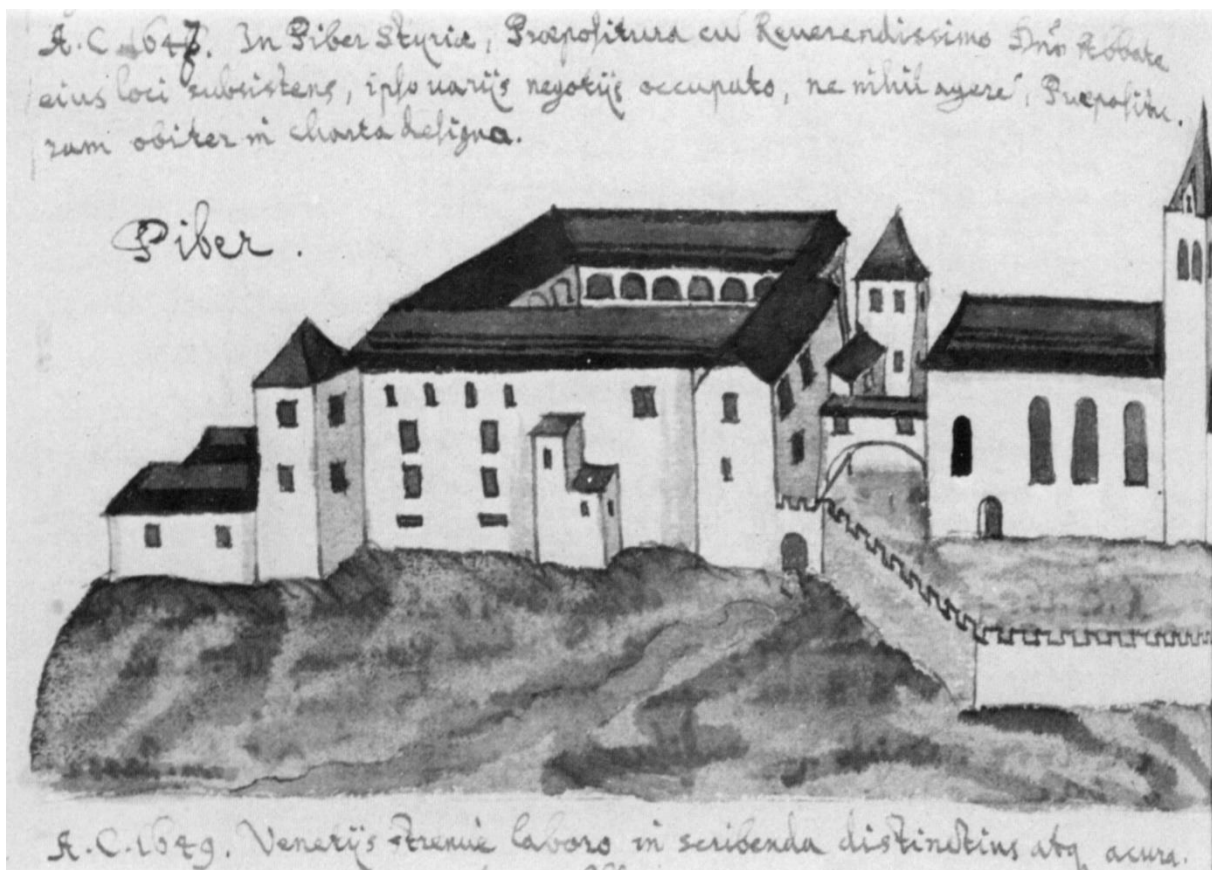 A. C. 1647. In Piber Styriæ, Præpositura cū Reuerendissimo Dnō Abbate
eius loci subsistens, ipso uarijs negotijs occupato, ne nihil agerē, Præpositu-
ram obiter in charta designa.
Piber.
A. C. 1649. Venetijs strenuè laboro in scribenda distinctius atq acura.